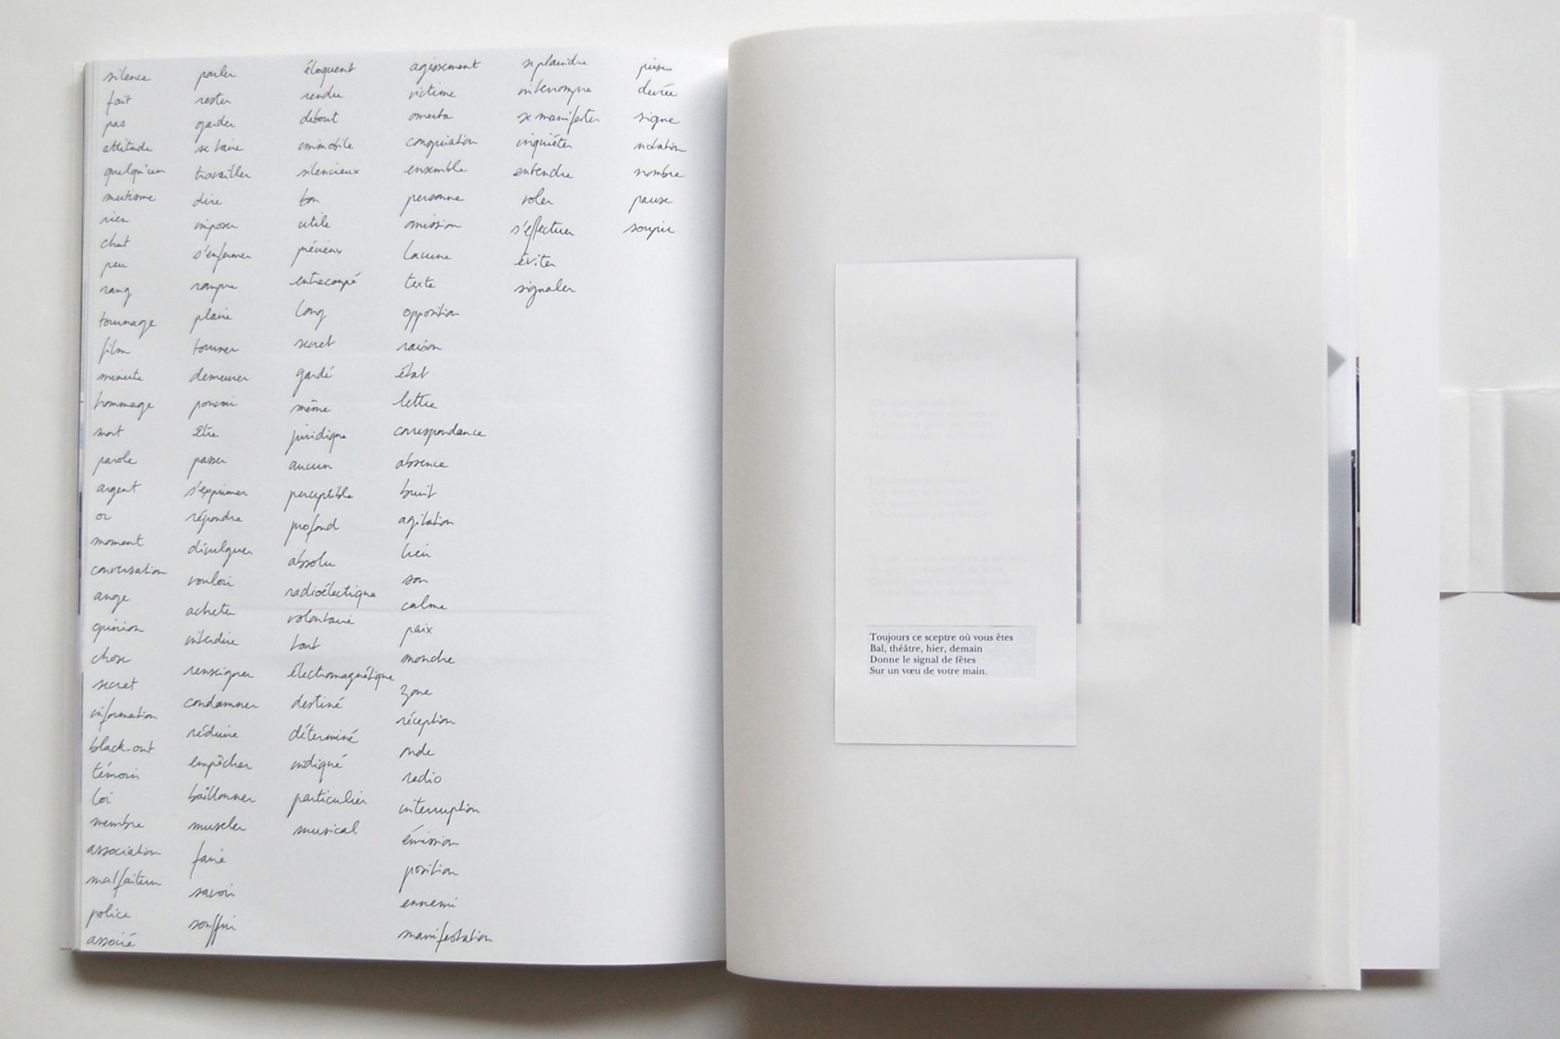 silence
fait
pas
attitude
quelqu'un
mutisme
rien
chut
peu
rang
tournage
film
minute
hommage
mort
parole
argent
or
moment
conversation
ange
opinion
chose
secret
information
black-out
témoin
loi
membre
association
malfaiteur
police
associé
parler
rester
garder
se taire
travailler
dire
imposer
s'enfermer
rompre
plaire
tourner
demeurer
pouvoir
être
passer
s'exprimer
répondre
divulguer
vouloir
acheter
interdire
renseigner
condamner
réduire
empêcher
baîllonner
museler
faire
savoir
souffrir
éloquent
rendu
debout
immobile
silencieux
bon
utile
précieux
entrecoupé
long
secret
gardé
même
juridique
aucun
perceptible
profond
absolu
radioélectrique
volontaire
tout
électromagnétique
destiné
déterminé
indiqué
particulier
musical
agissement
victime
omerta
conspiration
ensemble
personne
omission
lacune
texte
opposition
raison
état
lettre
correspondance
absence
bruit
agitation
lieu
son
calme
paix
moindre
zone
réception
onde
radio
interruption
émission
position
ennemi
manifestation
se plaindre
interrompre
se manifester
inquiéter
entendre
voler
s'effectuer
éviter
signaler
prise
durée
signe
notation
nombre
pause
soupir
Toujours ce sceptre où vous êtes
Bal, théâtre, hier, demain
Donne le signal de fêtes
Sur un vœu de votre main.